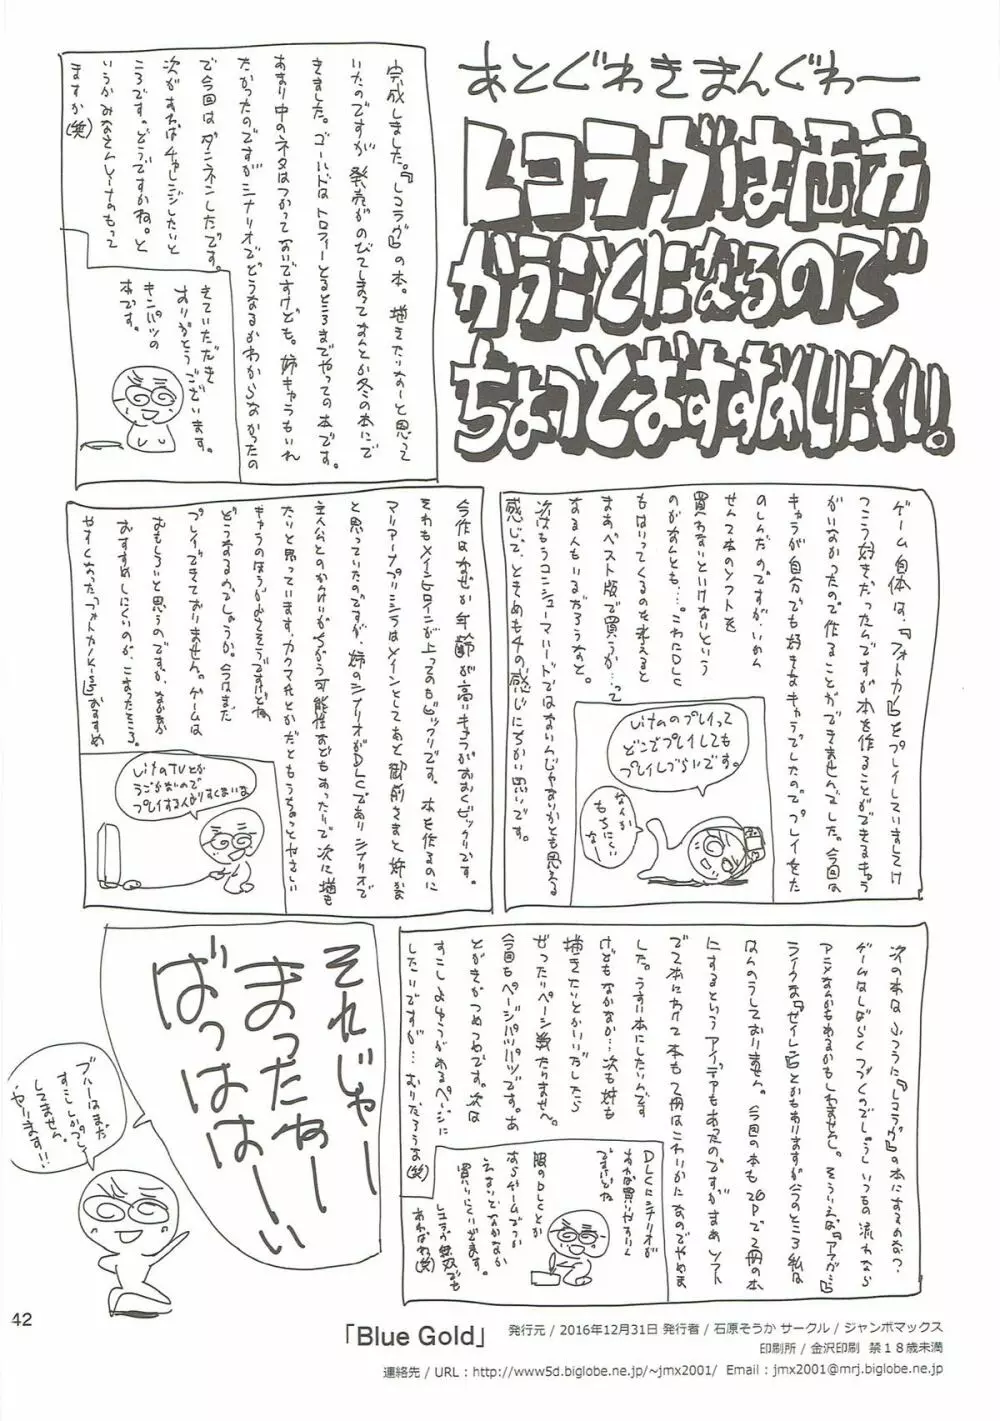 あとぐわきまんぐわー
レコラヴは両方
かうことになるので
ちょっとおすすめしにくい。
完成しました。『レコラヴ』の本。描きたいなーと思って
いたのですが発売がのびてしまってなんとか冬の本にで
きました。ゴールドはトロフィーとるところまでやっての本です。
あまり中のネタはつかってないですけども。姉キャラもいれ
たかったのですがシナリオでどうなるかわからなかったの
で今回はダンネンしたです。
次があればチャレンジしたいと
ころです。どうですかね。と
いうかみなさん
ますか(笑)
えていただき
ありがとうございます。
キンパツの
本です。
ゲーム自体は、『フォトカノ』をプレイしていましてけ
っこう好きだったんですが本を作ることができるキャラ
がいなかったので作ることができませんでした。今回は
キャラが自分でも好きなキャラでしたのでプレイをた
のしんだのですが、いかん
せん2本のソフトを
買わないといけないという
のがなんとも…。これにDLC
もはいってくるのを考えると
まあベスト版で買うか…って
なる人もいるだろうなと。
次はもうコンシューマハードではないんじゃないかとも思える
感じで、ときめも4の感じにちかい思いです。
Vitaのプレイって
どこでプレイしても
プレイしづらいです。
なんか
もちにくい
なー
今作はなぜか年齢が高いキャラがおおくビックリです。
それもメインヒロインが上ってのもビックリです。本を作るのに
マリアーナプリシラはメインとしてあと御前さまと姉かな
と思っていたのですが、姉のシナリオがDLCでありシナリオで
主人公とのかけいがちがう可能性などもあったりで次に描も
たりと思っています。カクマ氏とかだともうちょっとやさしい
キャラのほうがよさそうですけどね。
どうなるのでしょうか。今はまだ
プレイできておりません。ゲームは
おもしろいと思うのですが、なかなか
おすすめしにくいのが、こまったところ。
やすくなった「フォトカノKiss」おすすめ
VitaTVとか
うごかないので
プレイする人がりすくないな
次の本はふつうに『レコラヴ』の本にするのかな?
ゲームはしばらくつづくのでしょうし、いつもの流れなら
アニメなんかもあるかもしれません。そういえば『アマガミ』
ライクな『セイレン』とかもありますが今のところ私は
なんのうしておりません。今回の本も26Pで2冊の本
にするというアイデアもあったのですが、まあソフト
で2本にわけて本も2冊はこわりかになのでやめま
した。うすい本にしたいんです
けどもなかなか…次も姉も
描きたいとかいいだしたら
ぜったりページ数たりません。
今回もページパツパツです。あ
とがきがつめつめです。次は
すこしよゆうがあるページに
したいですが…むりだろうな(笑)
DLCにシナリオが
あれば買いせざるえん
ですけどね
服のDLCとか
ギャルゲームでつか
えないとなかなか
買いにくいじだいです。
レコラヴ無双でも
あればね(笑)
それじゃー
まったねー
ばっはは一い
ブルーはまだ
すこししかプレイ
してません。
やります!!
42
「Blue Gold」
発行元 / 2016年12月31日 発行者 / 石原そうか サークル / ジャンボマックス
印刷所 / 金沢印刷 禁18歳未満
連絡先 / URL : http://www5d.biglobe.ne.jp/~jmx2001/ Email : jmx2001@mrj.biglobe.ne.jp